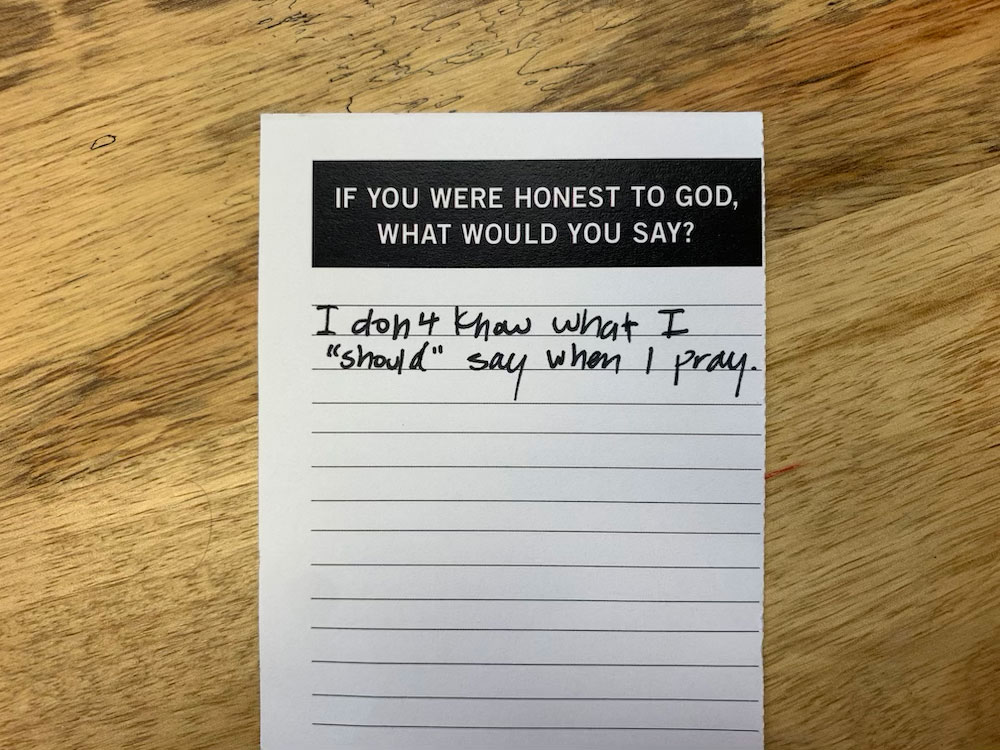 IF YOU WERE HONEST TO GOD,
WHAT WOULD YOU SAY?
I don't know what I
"should" say when I pray.